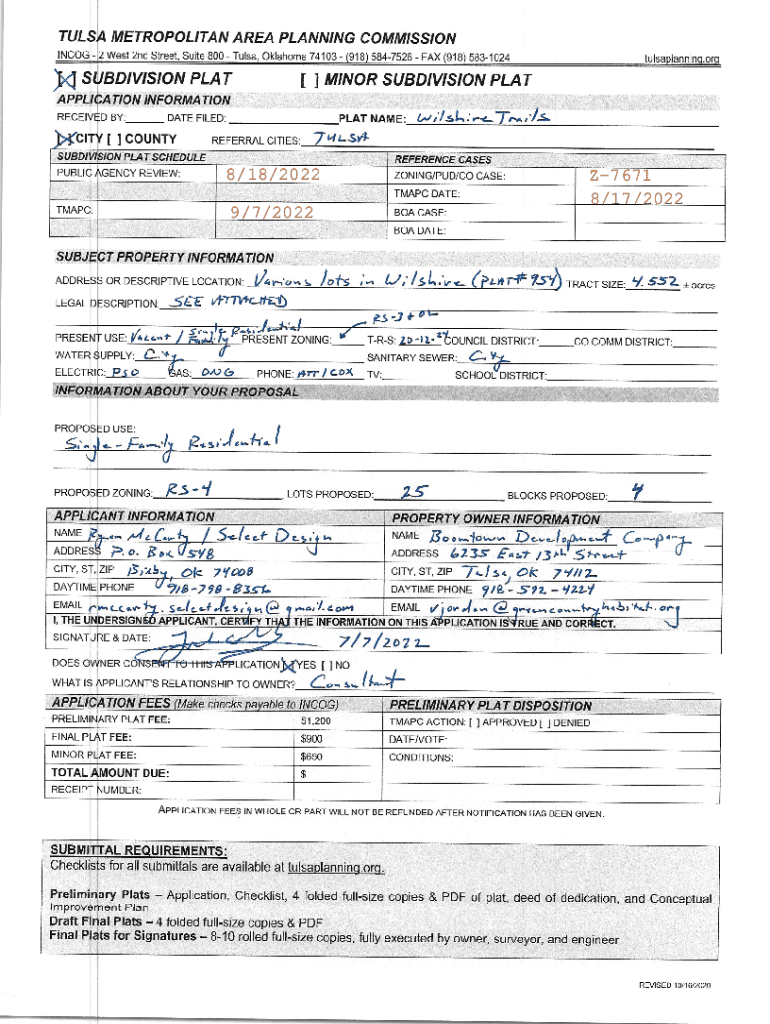 TULSA METROPOLITAN AREA PLANNING COMMISSION
INCOG - 2 West 2nd Street, Suite 800 - Tulsa, Oklahoma 74103 - (918) 584-7526 - FAX (918) 583-1024 tulsaplanning.org
[X] SUBDIVISION PLAT [ ] MINOR SUBDIVISION PLAT
APPLICATION INFORMATION
RECEIVED BY: DATE FILED: PLAT NAME: Wilshire Trails
[X] CITY [ ] COUNTY REFERRAL CITIES: TULSA
SUBDIVISION PLAT SCHEDULE REFERENCE CASES
PUBLIC AGENCY REVIEW: 8/18/2022 ZONING/PUD/CO CASE: Z-7671
TMAPC DATE: 8/17/2022
TMAPC: 9/7/2022 BOA CASE:
BOA DATE:
SUBJECT PROPERTY INFORMATION
ADDRESS OR DESCRIPTIVE LOCATION: Various lots in Wilshire (PLAT# 954) TRACT SIZE: 4.552 ± acres
LEGAL DESCRIPTION: SEE ATTACHED
RS-3 & OL
PRESENT USE: Vacant / Single Family Residential PRESENT ZONING: T-R-S: 20-12-24 COUNCIL DISTRICT: CO COMM DISTRICT:
WATER SUPPLY: City SANITARY SEWER: City
ELECTRIC: PSO GAS: ONG PHONE: ATT / COX TV: SCHOOL DISTRICT:
INFORMATION ABOUT YOUR PROPOSAL
PROPOSED USE:
Single-Family Residential
PROPOSED ZONING: RS-4 LOTS PROPOSED: 25 BLOCKS PROPOSED: 4
APPLICANT INFORMATION PROPERTY OWNER INFORMATION
NAME Ryan McCarty / Select Design NAME Boomtown Development Company
ADDRESS P.O. Box 548 ADDRESS 6235 East 13th Street
CITY, ST, ZIP Bixby, OK 74008 CITY, ST, ZIP Tulsa, OK 74112
DAYTIME PHONE 918-798-8356 DAYTIME PHONE 918-592-4224
EMAIL rmccarty.selectdesign@gmail.com EMAIL vjordan@greencountryhabitat.org
I, THE UNDERSIGNED APPLICANT, CERTIFY THAT THE INFORMATION ON THIS APPLICATION IS TRUE AND CORRECT.
SIGNATURE & DATE: 7/7/2022
DOES OWNER CONSENT TO THIS APPLICATION [X] YES [ ] NO
WHAT IS APPLICANT'S RELATIONSHIP TO OWNER? Consultant
APPLICATION FEES (Make checks payable to INCOG) PRELIMINARY PLAT DISPOSITION
PRELIMINARY PLAT FEE: $1,200 TMAPC ACTION: [ ] APPROVED [ ] DENIED
FINAL PLAT FEE: $900 DATE/VOTE:
MINOR PLAT FEE: $650 CONDITIONS:
TOTAL AMOUNT DUE: $
RECEIPT NUMBER:
APPLICATION FEES IN WHOLE OR PART WILL NOT BE REFUNDED AFTER NOTIFICATION HAS BEEN GIVEN.
SUBMITTAL REQUIREMENTS:
Checklists for all submittals are available at tulsaplanning.org.
Preliminary Plats – Application, Checklist, 4 folded full-size copies & PDF of plat, deed of dedication, and Conceptual
Improvement Plan
Draft Final Plats – 4 folded full-size copies & PDF
Final Plats for Signatures – 8-10 rolled full-size copies, fully executed by owner, surveyor, and engineer
REVISED 10/16/2020